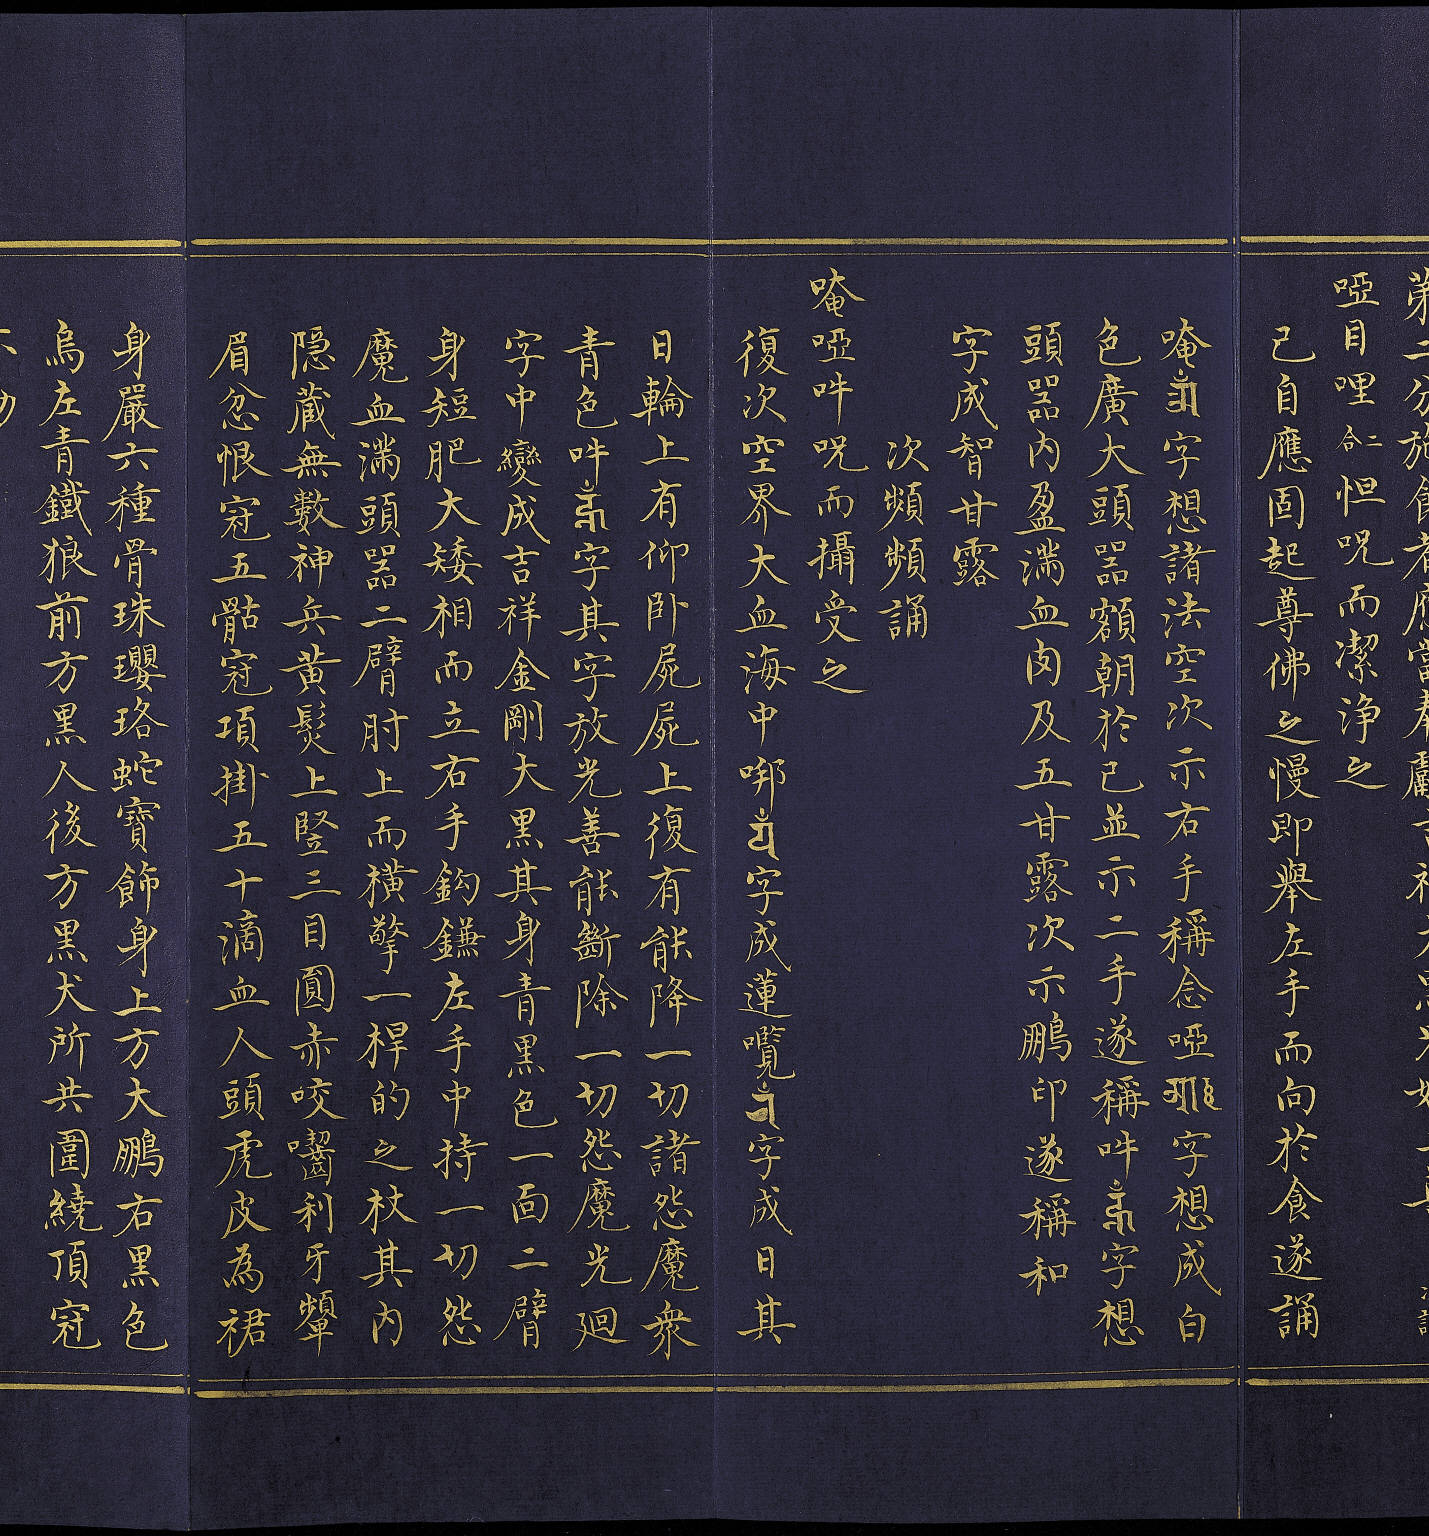 第二分施食者應當奉獻吉祥大黑
啞目哩二合怛呪而潔净之
己自應固起尊佛之慢即舉左手而向於食遂誦
唵字想諸法空次示右手稱念啞字想成白
色廣大頭器額朝於己並示二手遂稱吽字想
頭器內盈滿血肉及五甘露次示鵬印遂稱和
字成智甘露
次頻頻誦
唵啞吽呪而攝受之
復次空界大血海中㘕字成蓮囕字成日其
日輪上有仰卧屍屍上復有能降一切諸怨魔衆
青色吽字其字放光善能斷除一切怨魔光廻
字中變成吉祥金剛大黑其身青黑色一面二臂
身短肥大矮相而立右手鈎鐮左手中持一切怨
魔血滿頭器二臂肘上而橫擎一桿的之杖其內
隱藏無數神兵黃髮上竪三目圓赤咬齧利牙顰
眉忿恨冠五骷冠項掛五十滴血人頭虎皮為裙
身嚴六種骨珠瓔珞蛇寶飾身上方大鵬右黑色
烏左青鐵狼前方黑人後方黑犬所共圍繞頂冠